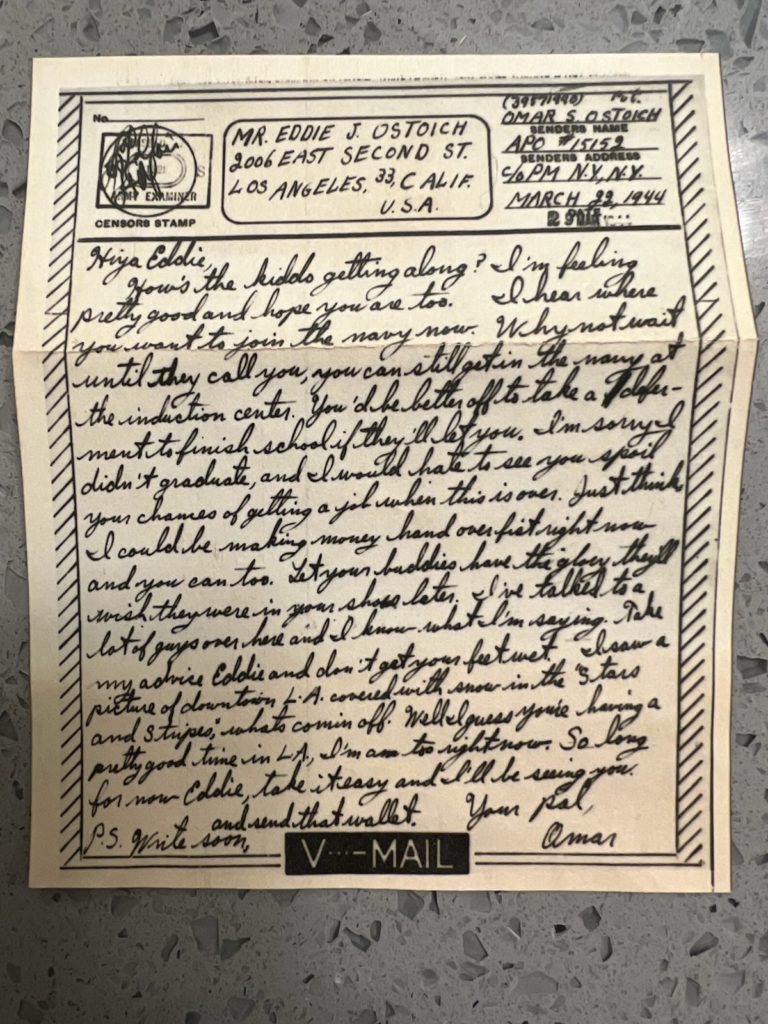 No.
ARMY EXAMINER
CENSORS STAMP
MR. EDDIE J. OSTOICH
2006 EAST SECOND ST.
LOS ANGELES, 33, CALIF.
U.S.A.
Pvt.
OMAR S. OSTOICH
SENDERS NAME
APO # 15152
SENDERS ADDRESS
c/o PM N.Y., N.Y.
MARCH 22, 1944
Hiya Eddie,
How's the kiddo getting along? I'm feeling
pretty good and hope you are too. I hear where
you want to join the navy now. Why not wait
until they call you, you can still get in the navy at
the induction center. You'd be better off to take a defer-
ment to finish school if they'll let you. I'm sorry I
didn't graduate, and I would hate to see you spoil
your chances of getting a job when this is over. Just think
I could be making money hand over fist right now
and you can too. Let your buddies have the glory they'll
wish they were in your shoes later. I've talked to a
lot of guys over here and I know what I'm saying. Take
my advice Eddie and don't get your feet wet. I saw a
picture of downtown L.A. covered with snow in the "Stars
and Stripes," whats comin off. Well I guess you're having a
pretty good time in L.A., I'm a too right now. So long
for now Eddie, take it easy and I'll be seeing you.
Your pal,
Omar
P.S. Write soon, and send that wallet.
V···—MAIL